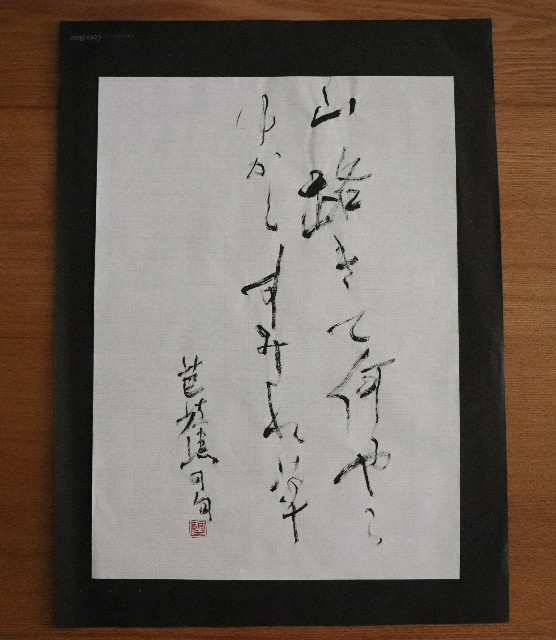 山路きて何やら
ゆかしすみれ草
芭蕉の句
Color Base